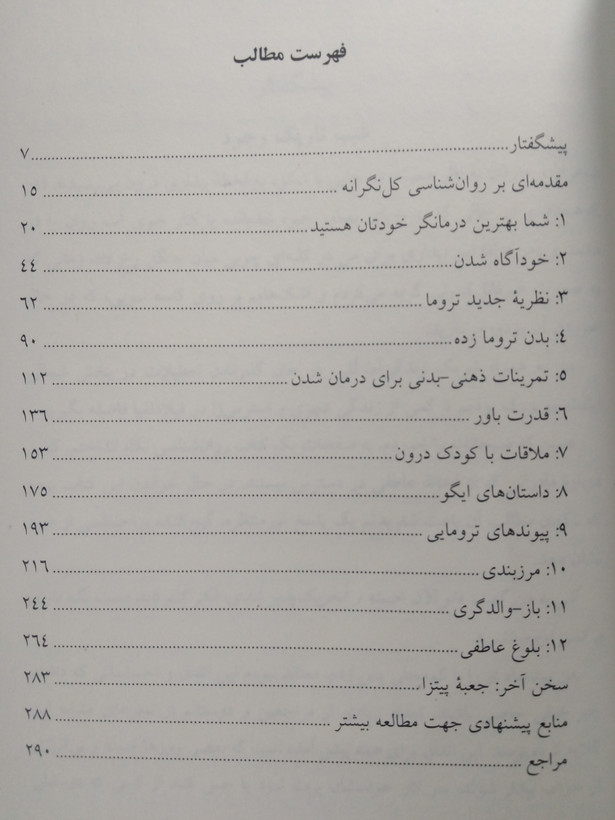 فهرست مطالب
پیشگفتار ۷
مقدمه‌ای بر روان‌شناسی کل‌نگرانه ۱۵
۱: شما بهترین درمانگر خودتان هستید ۲۰
۲: خودآگاه شدن ٤٤
۳: نظریهٔ جدید تروما ۶۲
٤: بدن تروما زده ۹۰
۵: تمرینات ذهنی-بدنی برای درمان شدن ۱۱۲
۶: قدرت باور ۱۳۶
۷: ملاقات با کودک درون ۱۵۳
۸: داستان‌های ایگو ۱۷۵
۹: پیوندهای ترومایی ۱۹۳
۱۰: مرزبندی ۲۱۶
۱۱: باز-والدگری ۲٤٤
۱۲: بلوغ عاطفی ۲۶٤
سخن آخر: جعبهٔ پیتزا ۲۸۳
منابع پیشنهادی جهت مطالعه بیشتر ۲۸۸
مراجع ۲۹۰